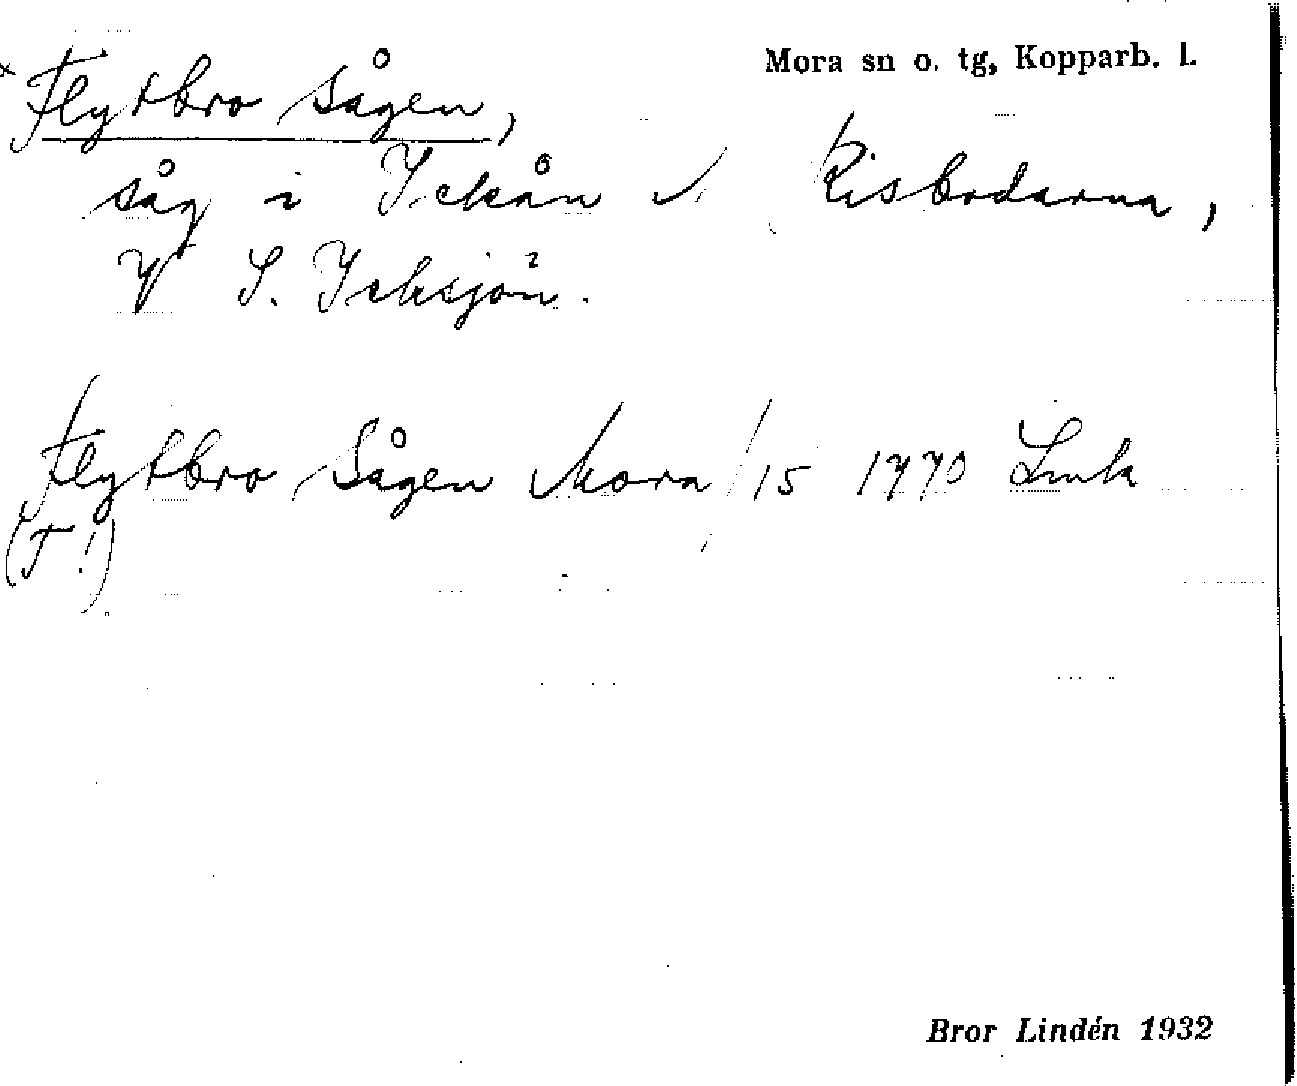 Mora sn o. tg, Kopparb. l.
Flytbro Sågen,
såg i Ickån v Risbodarna,
V S. Icksjön.
Flytbro Sågen Mora /15 1770 Lmk
(T!)
Bror Lindén 1932